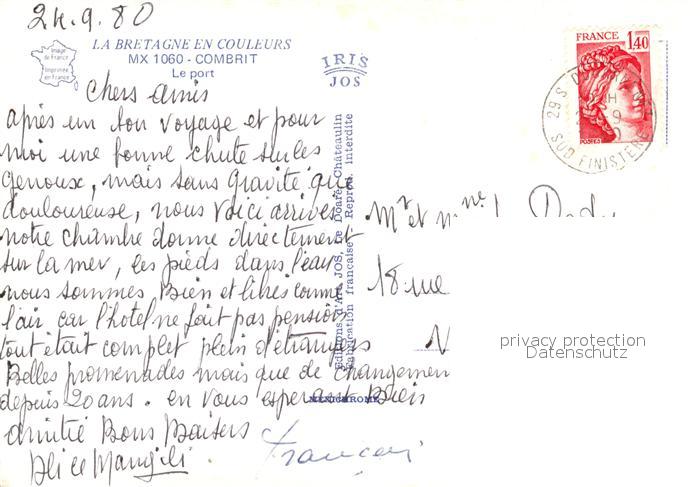 24.9.80
LA BRETAGNE EN COULEURS
MX 1060 - COMBRIT
Le port
Image de France
Imprimée en France
IRIS
JOS
FRANCE
1,40
POSTES
29 S
SUD FINISTERE
chers amis
après un bon voyage et pour
moi une bonne chute sur les
genoux, mais sans gravité que
douloureuse, nous voici arrivés
notre chambre donne directement
sur la mer, les pieds dans l'eau
nous sommes Bien et libres comme
l'air car l'hotel ne fait pas pension
tout était complet plein d'étrangers
Belles promenades mais que de changement
depuis 20 ans. en vous esperant Bien
amitié Bons Baisers
François
Editions d'Art JOS, Le Doaré, Châteaulin
Fabrication française - Reprod. interdite
MEXICHROME
Mr et Mme
18 rue
N
privacy protection
Datenschutz